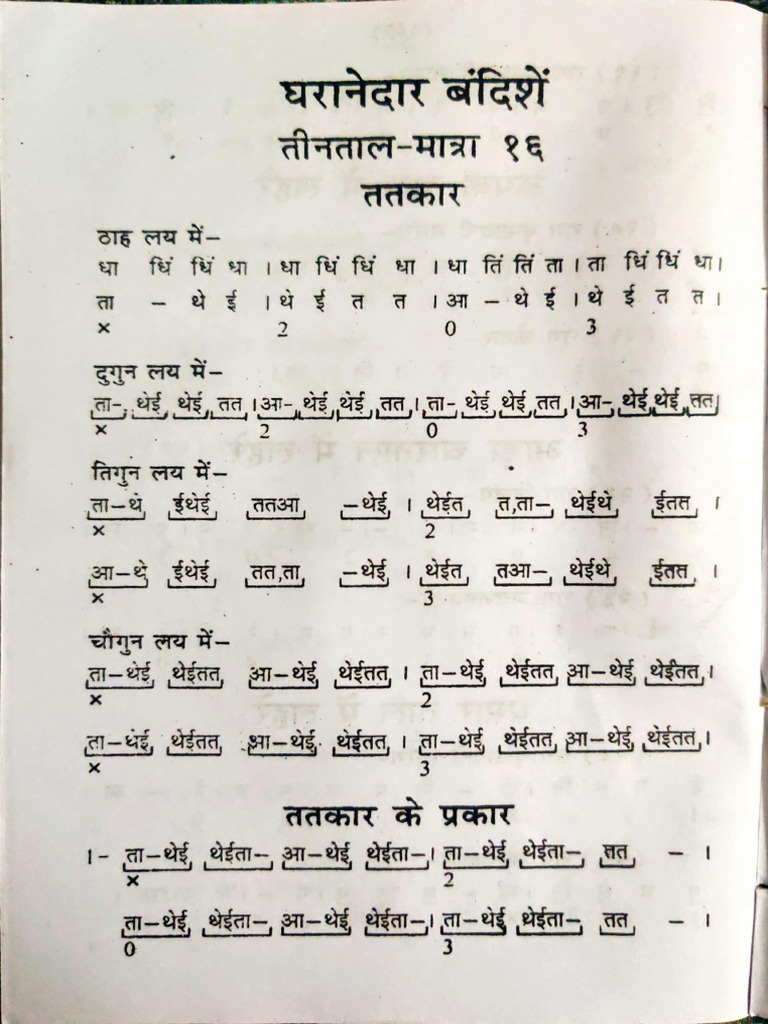 घरानेदार बंदिशें
तीनताल-मात्रा १६
ततकार
ठाह लय में-
धा धिं धिं धा । धा धिं धिं धा । धा तिं तिं ता । ता धिं धिं धा ।
ता - थे ई । थे ई त त । आ - थे ई । थे ई त त ।
× 2 0 3
दुगुन लय में-
ता-, थेई, थेई, तत । आ- थेई, थेई, तत । ता- थेई थेई, तत, । आ-, थेई थेई, तत
× 2 0 3
तिगुन लय में-
ता-थे ईथेई ततआ -थेई । थेईत त,ता- थेईथे ईतत ।
× 2
आ-थे ईथेई तत,ता -थेई । थेईत तआ- थेईथे ईतत ।
× 3
चौगुन लय में-
ता-थेई थेईतत आ-थेई थेईतत । ता-थेई थेईतत आ-थेई थेईतत ।
× 2
ता-थेई थेईतत आ-थेई थेईतत । ता-थेई थेईतत आ-थेई थेईतत ।
× 3
ततकार के प्रकार
।- ता-थेई थेईता- आ-थेई थेईता- । ता-थेई थेईता- तत - ।
× 2
ता-थेई थेईता- आ-थेई थेईता- । ता-थेई थेईता- तत - ।
0 3